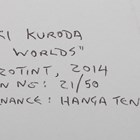 KI KURODA
WORLDS"
ZOTINT, 2014
N NE: 21/50
NANCE: HANGA TEN